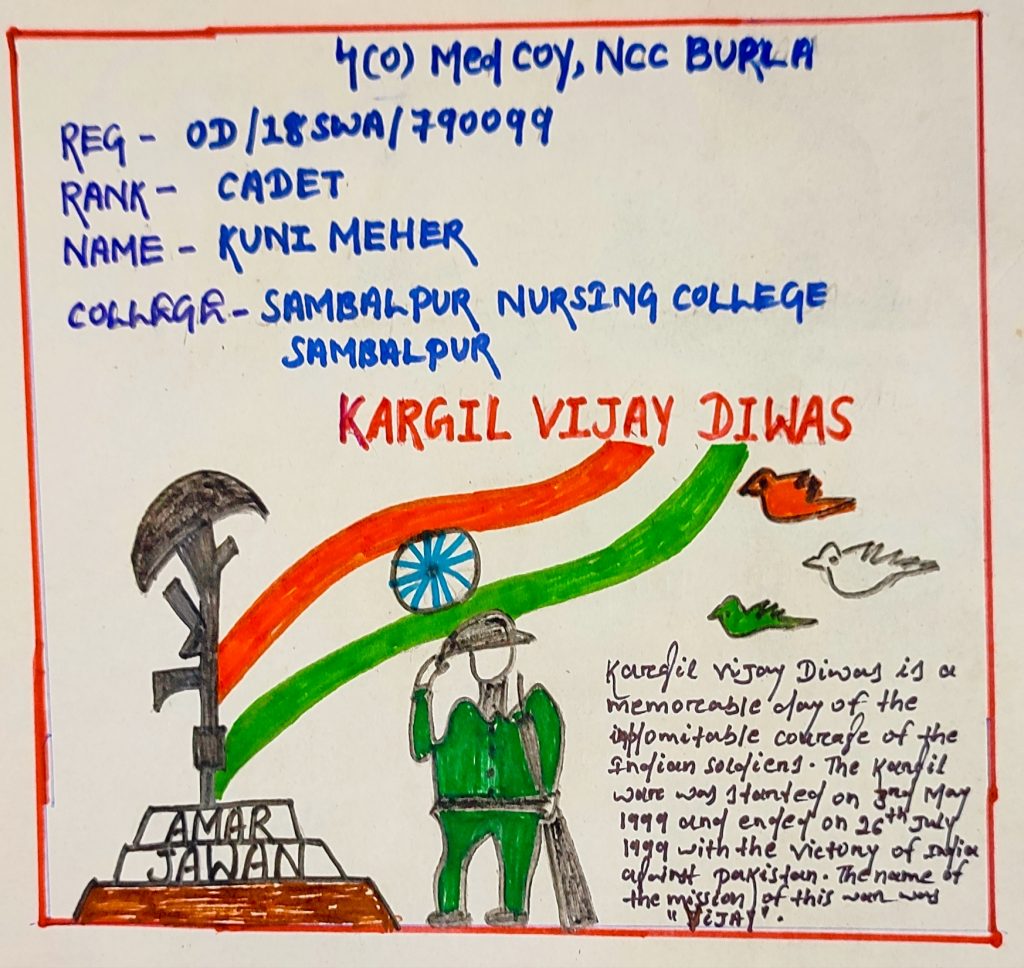 4(0) Med COY, NCC BURLA
REG - OD/18SWA/790099
RANK - CADET
NAME - KUNI MEHER
COLLEGE - SAMBALPUR NURSING COLLEGE
SAMBALPUR
KARGIL VIJAY DIWAS
AMAR
JAWAN
Kargil Vijay Diwas is a
memorable day of the
indomitable courage of the
Indian soldiers. The Kargil
ware was started on 3rd May
1999 and ended on 26th July
1999 with the victory of India
against pakistan. The name of
the mission of this war was
"VIJAY".